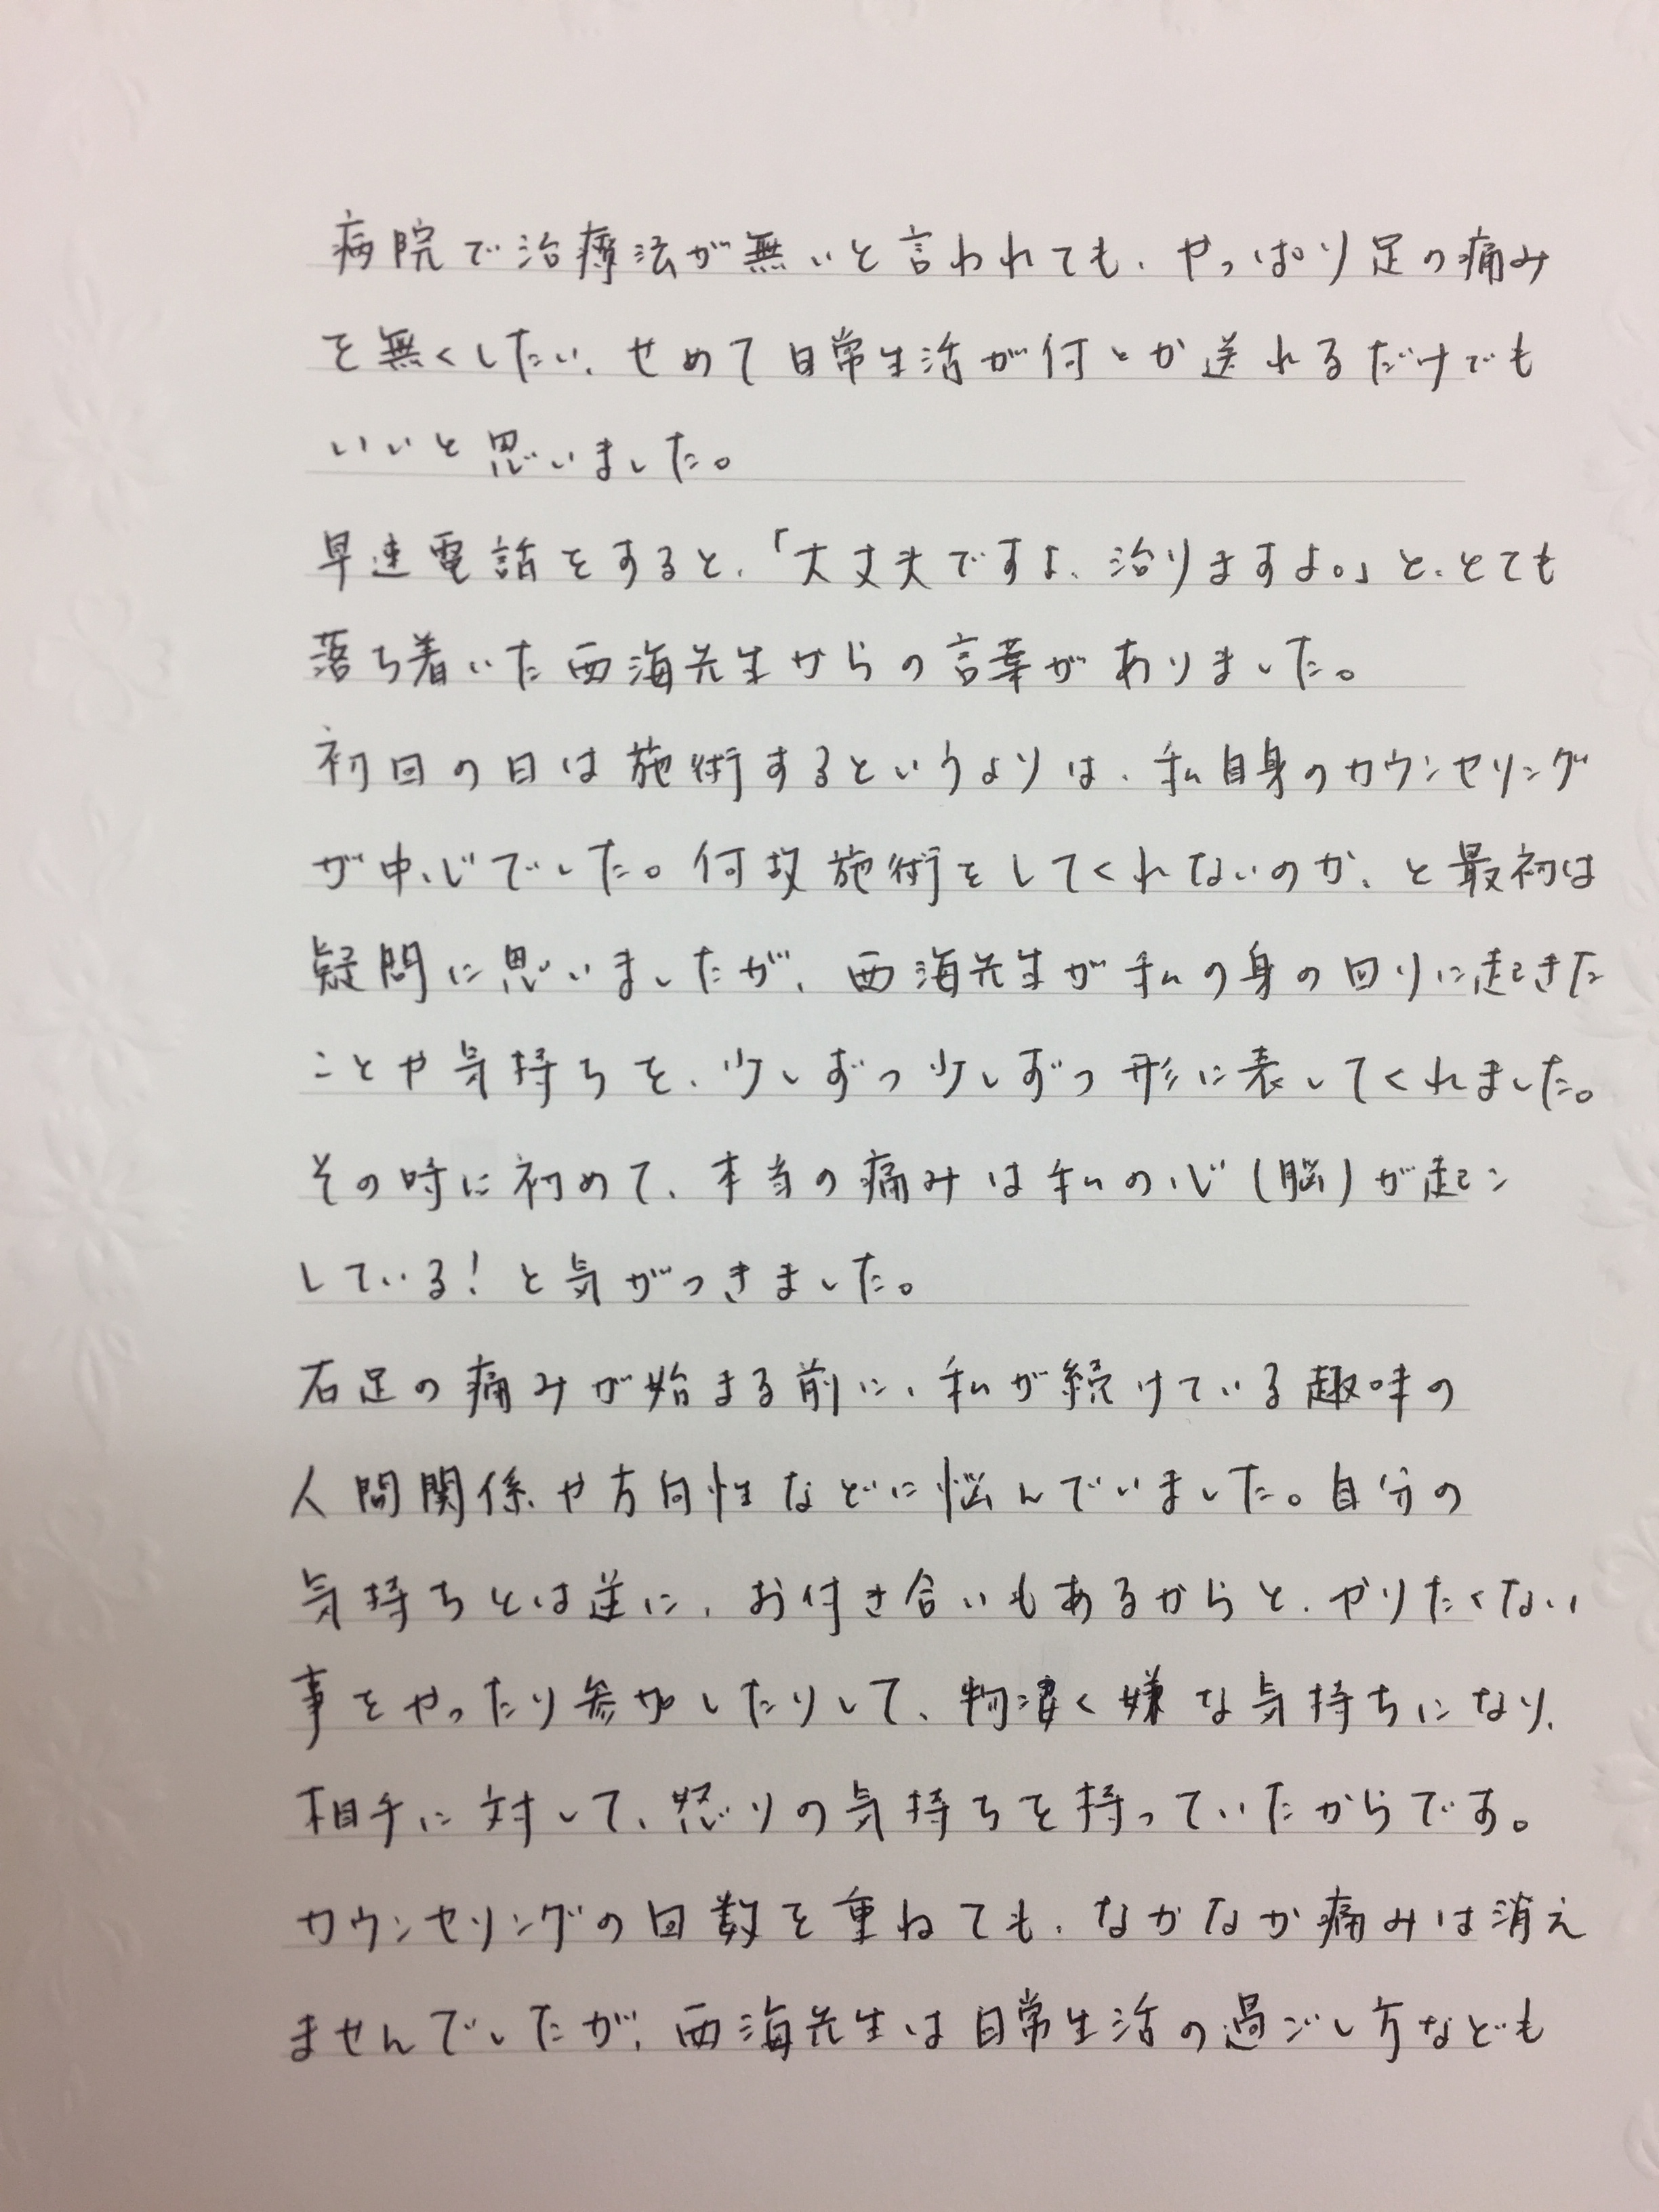 病院で治療法が無いと言われても、やっぱり足の痛み
を無くしたい、せめて日常生活が何とか送れるだけでも
いいと思いました。
早速電話をすると、「大丈夫ですよ、治りますよ。」と、とても
落ち着いた西海先生からの言葉がありました。
初回の日は施術するというよりは、私自身のカウンセリング
が中心でした。何故施術をしてくれないのか、と最初は
疑問に思いましたが、西海先生が私の身の回りに起きた
ことや気持ちを、少しずつ少しずつ形に表してくれました。
その時に初めて、本当の痛みは私の心(脳)が起こ
している!と気がつきました。
右足の痛みが始まる前に、私が続けている趣味の
人間関係や方向性などに悩んでいました。自分の
気持ちとは逆に、お付き合いもあるからと、やりたくない
事をやったり参加したりして、物凄く嫌な気持ちになり、
相手に対して、怒りの気持ちを持っていたからです。
カウンセリングの回数を重ねても、なかなか痛みは消え
ませんでしたが、西海先生は日常生活の過ごし方なども